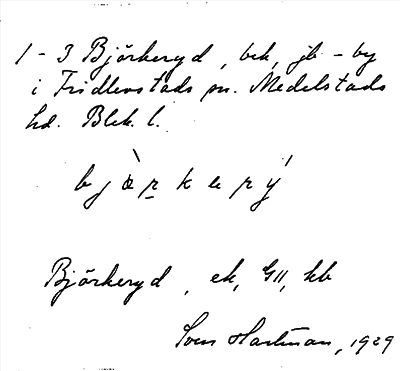 1-3 Björkeryd, bek, jb - by
i Fridlevstads sn. Medelstads
hd. Blek. l.
Björkeryd, ek, GII, kb
Sven Hartman, 1929